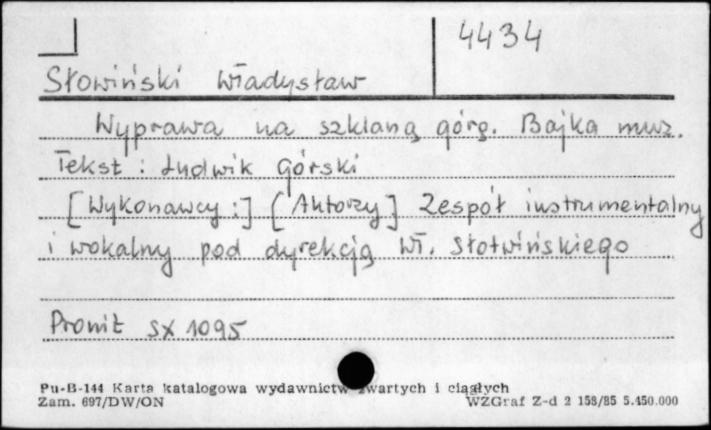 4434
Słowiński Władysław
Wyprawa na szklaną górę. Bajka muz.
Tekst : Ludwik Górski
[Wykonawcy :] [Aktorzy] Zespół instrumentalny
i wokalny pod dyrekcją Wł. Słotwińskiego
Pronit SX 1095
Pu-B-144 Karta katalogowa wydawnictw zwartych i ciągłych
Zam. 697/DW/ON WZGraf Z-d 2 158/85 5.450.000